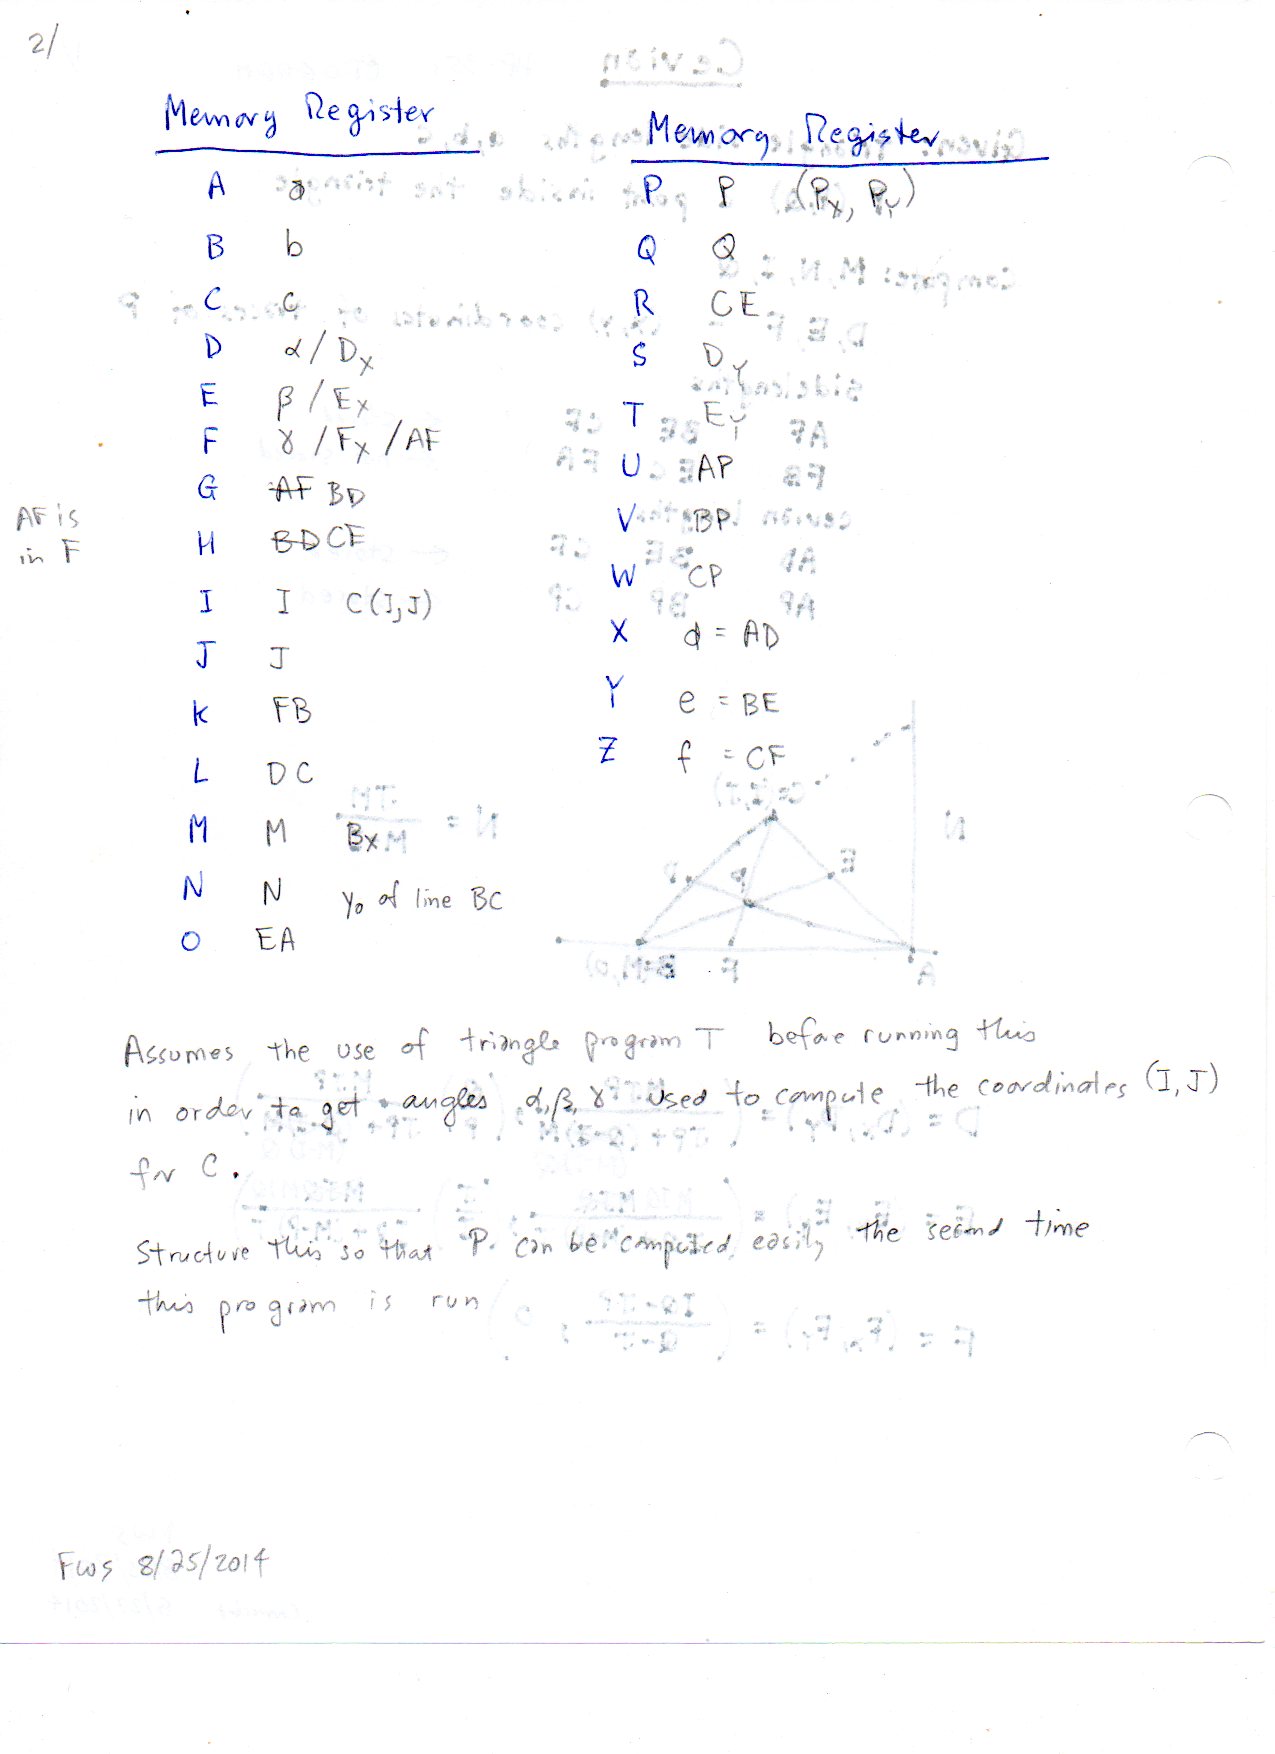 2/
Memory Register
A a
B b
C c
D α/Dx
E β/Ex
F γ/Fx/AF
G AF BD
AF is
in F
H BD CE
I I C(I,J)
J J
K FB
L DC
M M Bx
N N y₀ of line BC
O EA
Memory Register
P P (Px, Py)
Q Q
R CE
S Dy
T Ey
U AP
V BP
W CP
X d = AD
Y e = BE
Z f = CF
Assumes the use of triangle program T before running this
in order to get angles α, β, γ used to compute the coordinates (I, J)
for C.
Structure this so that P can be computed easily the second time
this program is run
FWS 8/25/2014